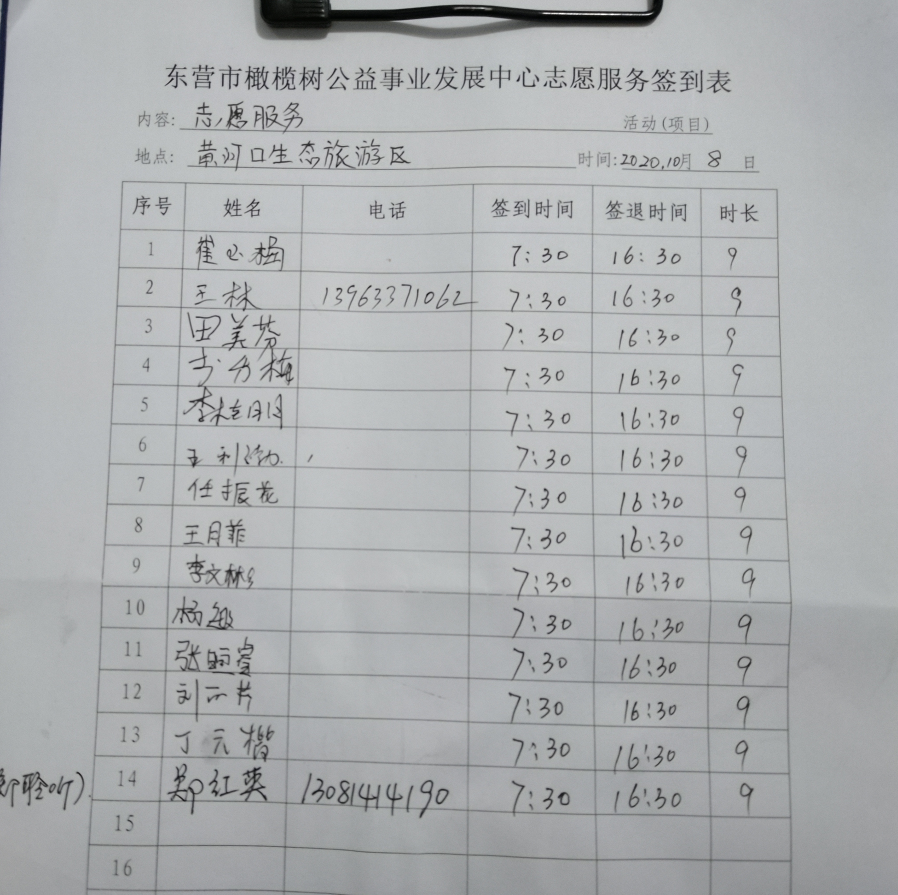 东营市橄榄树公益事业发展中心志愿服务签到表
内容: 志愿服务 活动(项目)
地点: 黄河口生态旅游区 时间:2020,10月 8 日
序号 姓名 电话 签到时间 签退时间 时长
1 崔 梅 7:30 16:30 9
2 王林 13963371062 7:30 16:30 9
3 田美芬 7:30 16:30 9
4 梅 7:30 16:30 9
5 李桂月 7:30 16:30 9
6 王利 7:30 16:30 9
7 任振花 7:30 16:30 9
8 王月菲 7:30 16:30 9
9 李文林 7:30 16:30 9
10 杨敏 7:30 16:30 9
11 张 7:30 16:30 9
12 刘 7:30 16:30 9
13 丁元楷 7:30 16:30 9
14 郑红英 13081414190 7:30 16:30 9
15
16